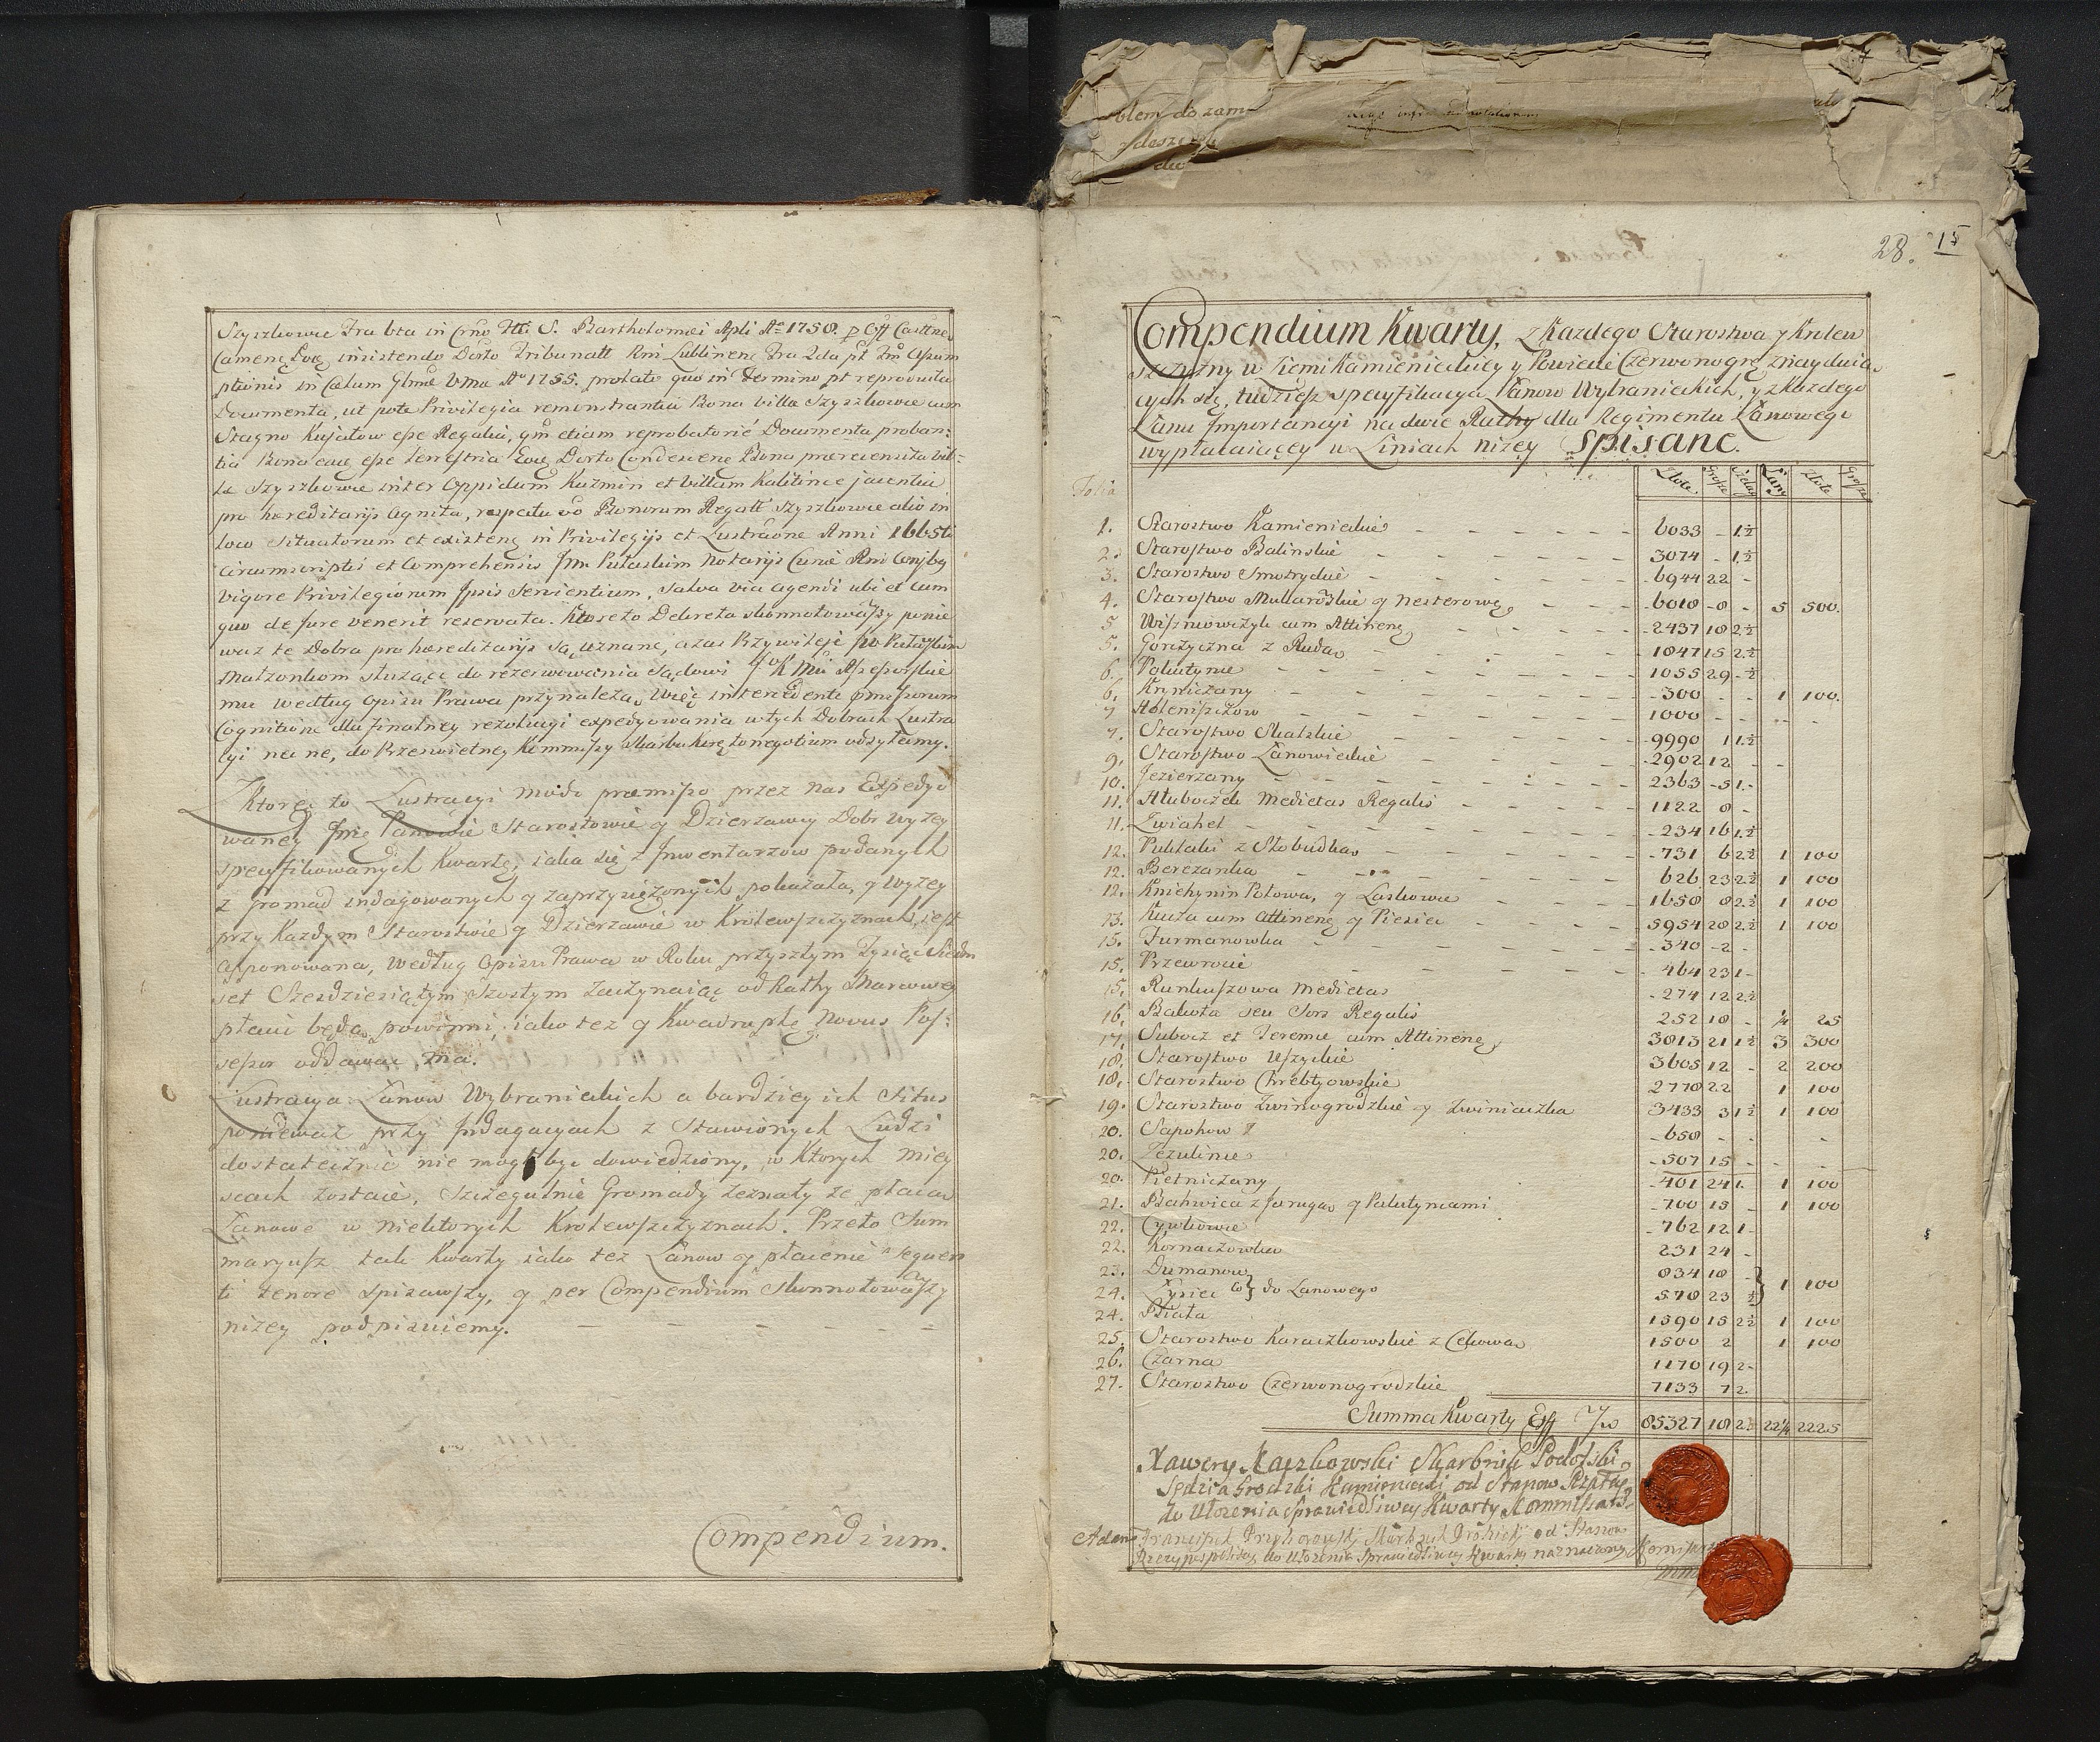 Szyszkowce fra bta in Crno fti S. Bartholomei Apli Ao 1750. p Off Castrne
Camenę Eoę insistendo Dorto Tribunall Rni Lublinenę
ptionis in Catum Glnne Ao 1755. prolato quo in Termino pt reproduita
Documenta, ut pote Privilegia remonstrantia Bona villa Szyszkowce cum
Stagno Kujałow eße Regalia, qm etiam reprobatorié Documenta proban:
tia Bona eaeę eße terrestria Eoę Dorto Condescenę Bona praerecensita vil=
la Szyszkowce inter Oppidum Kuzmin et villam Kalitince jacentia
pro haereditarijs agnita, respectu vo Bonorum Regall Szyszkowce alio in
loco situatorum et existenę in Privilegijs et Lustraone Anni 1665ti
circumscriptis et Comprehensis Jm Pułaskim Notarijs Curiae Rni Conjbg
vigore Privilegiorum Jpsis servientium, salva via agendi ubi et cum
quo de jure venerit reservata. Ktore to Dekreta skonnotowaßzy ponie
waż te Dobra pro haereditarijs są uznane, a zas Przywileje
Małzonkom służące do rezerwowania Sądowi JoK Mci Aßeßorskie
mu według opisu Prawa przynależą, więc intercedente praemißorum
Cognitione dla finalney rezolucyi expedyowania w tych Dobrach Lustra
cyi na ne, do Przeswietney Kommißyi Skarbu Korę to negotium odsyłamy.
Z ktorey to Lustracyi modo praemißo przez nas Expedyo
waney Jmę Panowie Starostowie y Dzierzawcy Dobr wyżey
specyfikowanych Kwartę, iaka się z Jnwentarzow podanych
z Gromad indagowanych y zaprzysiężonych pokazała, y wyżey
przy Każdym Starostwie y Dzierzawie w Krolewszczyznach iest
apponowana, według opisu Prawa w Roku przyszłym Tysiąc Siedm
set Szesdziesiątym Szostym zaczynaiąc od Rathy Marcowey
płacić będą powinni, iako też y Kwadruplę Novus Pos=
seßor oddawać ma.
Lustracya Łanow Wybranieckich a bardziey ich Situs
ponieważ przy Jndagacyach z Stawionych Ludzi
dostatecznie nie mogł bydź dowiedziony, w Ktorych miey
scach zostaie, szczegulnie Gromady zeznały że płacą
Łanowe w niektorych Krolewszczyznach. Przeto Sum
maryusz tak Kwarty iako też Łanow y płacenie sequen
ti tenore spisawszy, y per Compendium skonnotowaßzy
niżey podpisuiemy.
Compendium.
28. 15
Compendium Kwarty, z Każdego Starostwa y Krolew
szczyzny w Ziemi Kamienieckiey y Powiecie Czerwonogrę znayduią
cych się, tudziesz specyfikacya Łanow Wybranieckich, y z Każdego
Łanu Jmportancyi na dwie Rathy dla Regimentu Łanowego
wypłacaiącey w Liniach niżey Spisane.
Folia Złote. Grosze Szeląg Łany Złote Grosze
1. Starostwo Kamienieckie 6033 - 1½
2. Starostwo Balinskie 3074 - 1½
3. Starostwo Smotryckie 6944 22 -
4. Starostwo Mukarowskie y Nesterowę 6010 - 8 - 5 500.
5 Wiszniowczyk cum Attinenę 2437 18 2½
5. Goryczna z Rudą 1047 15 2½
6. Pałutynce 1055 29 - ½
6. Kryniczany 300 - - 1 100.
7 Holeniszczow 1000 - -
7. Starostwo Skalskie 9990 1 1½
9. Starostwo Łanowieckie 2902 12 -
10. Jezierzany 2363 - 5 1.-
11. Hłuboczek Medietas Regalis 1122 8 -
11. Zwiahel 234 16 1½
12. Pukłaki z Słobudką 731 6 2½ 1 100
12. Berezanka 626 23 2½ 1 100
12. Kniehynin Połowa, y Laskowce 1650 8 2½ 1 100
13. Kucza cum attinenę y Piesiec 5954 28 2½ 1 100
15. Furmanowka 340 - 2 -
15. Przewrocie 464 23 1-
15. Runkuszowa Medietas 274 12 2½
16. Bakota seu Sors Regalis 252 18 - ¼ 25
17. Subocz et Jeremie cum Attinenę 3013 21 1½ 3 300
18. Starostwo Uszyckie 3605 12 - 2 200
18. Starostwo Chrebtyowskie 2778 22 1 100
19. Starostwo Zwinogrodzkie y Zwiniaczka 3433 3 1½ 1 100
20. Sapohow 650 - -
20. Zezulince 507 15 -
20. Pietniczany 401 24 1. 1 100
21. Bahwica z Jarugą y Pałutyncami 700 15 - 1 100
22. Cywkowce 762 12 1-
22. Kornaczowka 231 24 -
23. Dumanow 834 18 -
24. Łysiec do Łanowego 578 23 ½ 1 100
24. Biała 1590 15 2½ 1 100
25. Starostwo Karaczkowskie z Cekową 1500 2 1 100
26. Czarna 1170 19 2-
27. Starostwo Czerwonogrodzkie 7133 7 2
Summa Kwarty Eff 85327 18 2½ 22¼ 2225
Xawery Raczkowski Skarbnik Podolski
Sędzia Grodzki Kamieniecki od Stanow Rzpltey
do Ułożenia Sprawiedliwey Kwarty Kommissarz
Adam Franciszek Przyborowski od Stanow
Rzeczypospolitey do Ułożenia Sprawiedliwey Kwarty naznaczony Komißarz
mmp